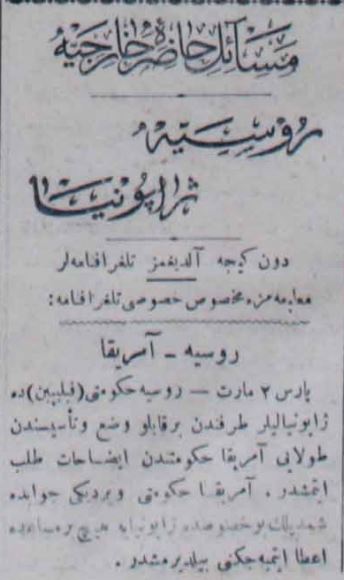 مسائل حاضرهٔ خارجیه
روسیه
ژاپونیا
دون کیجه آلدیغمز تلغرافنامه‌لر
معلومه مزه مخصوص خصوصی تلغرافنامه:
روسیه – آمریقا
پارس ٢ مارت — روسیه حکومتی (فیلیپین) ده
ژاپونیالیلر طرفندن برقابلو وضع وتأسیسندن
طولایی آمریقا حکومتندن ایضاحات طلب
ایتمشدر . آمریقا حکومتی ویردیکی جوابده
شمدیلك بو خصوصده ژاپونیایه هیچ بر مساعده
اعطا ایتمیه جکنی بیلدیرمشدر .